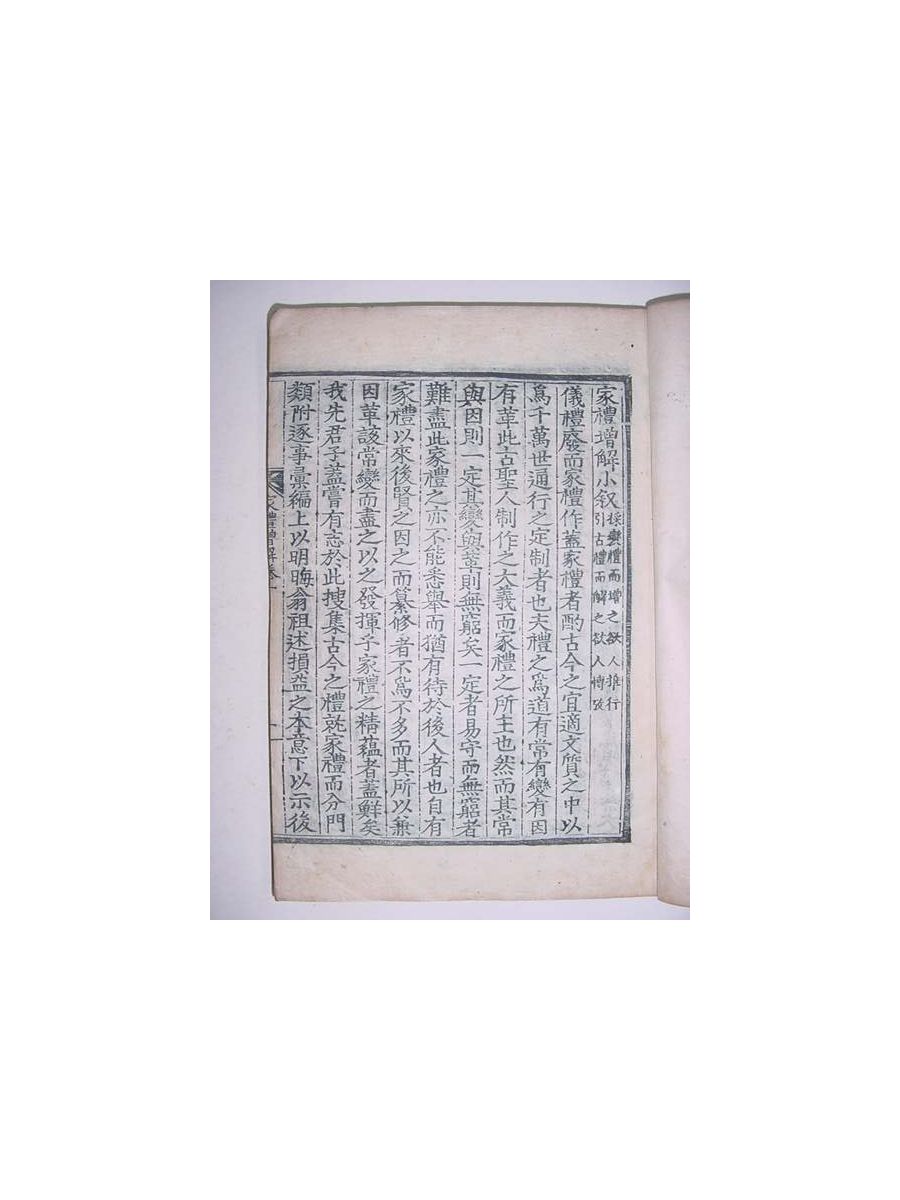 家禮增解小叙 採變禮而增之欲人推行
引古禮而解之欲人博攷
儀禮廢而家禮作蓋家禮者酌古今之宜適文質之中以
爲千萬世通行之定制者也夫禮之爲道有常有變有因
有革此古聖人制作之大義而家禮之所主也然而其常
與因則一定其變與革則無窮矣一定者易守而無窮者
難盡此家禮之亦不能悉舉而猶有待於後人者也自有
家禮以來後賢之因之而纂修者不爲不多而其所以兼
因革該常變而盡之以之發揮乎家禮之精蘊者蓋鮮矣
我先君子蓋嘗有志於此搜集古今之禮就家禮而分門
類附逐事彙編上以明晦翁祖述損益之本意下以示後
家禮增解卷一